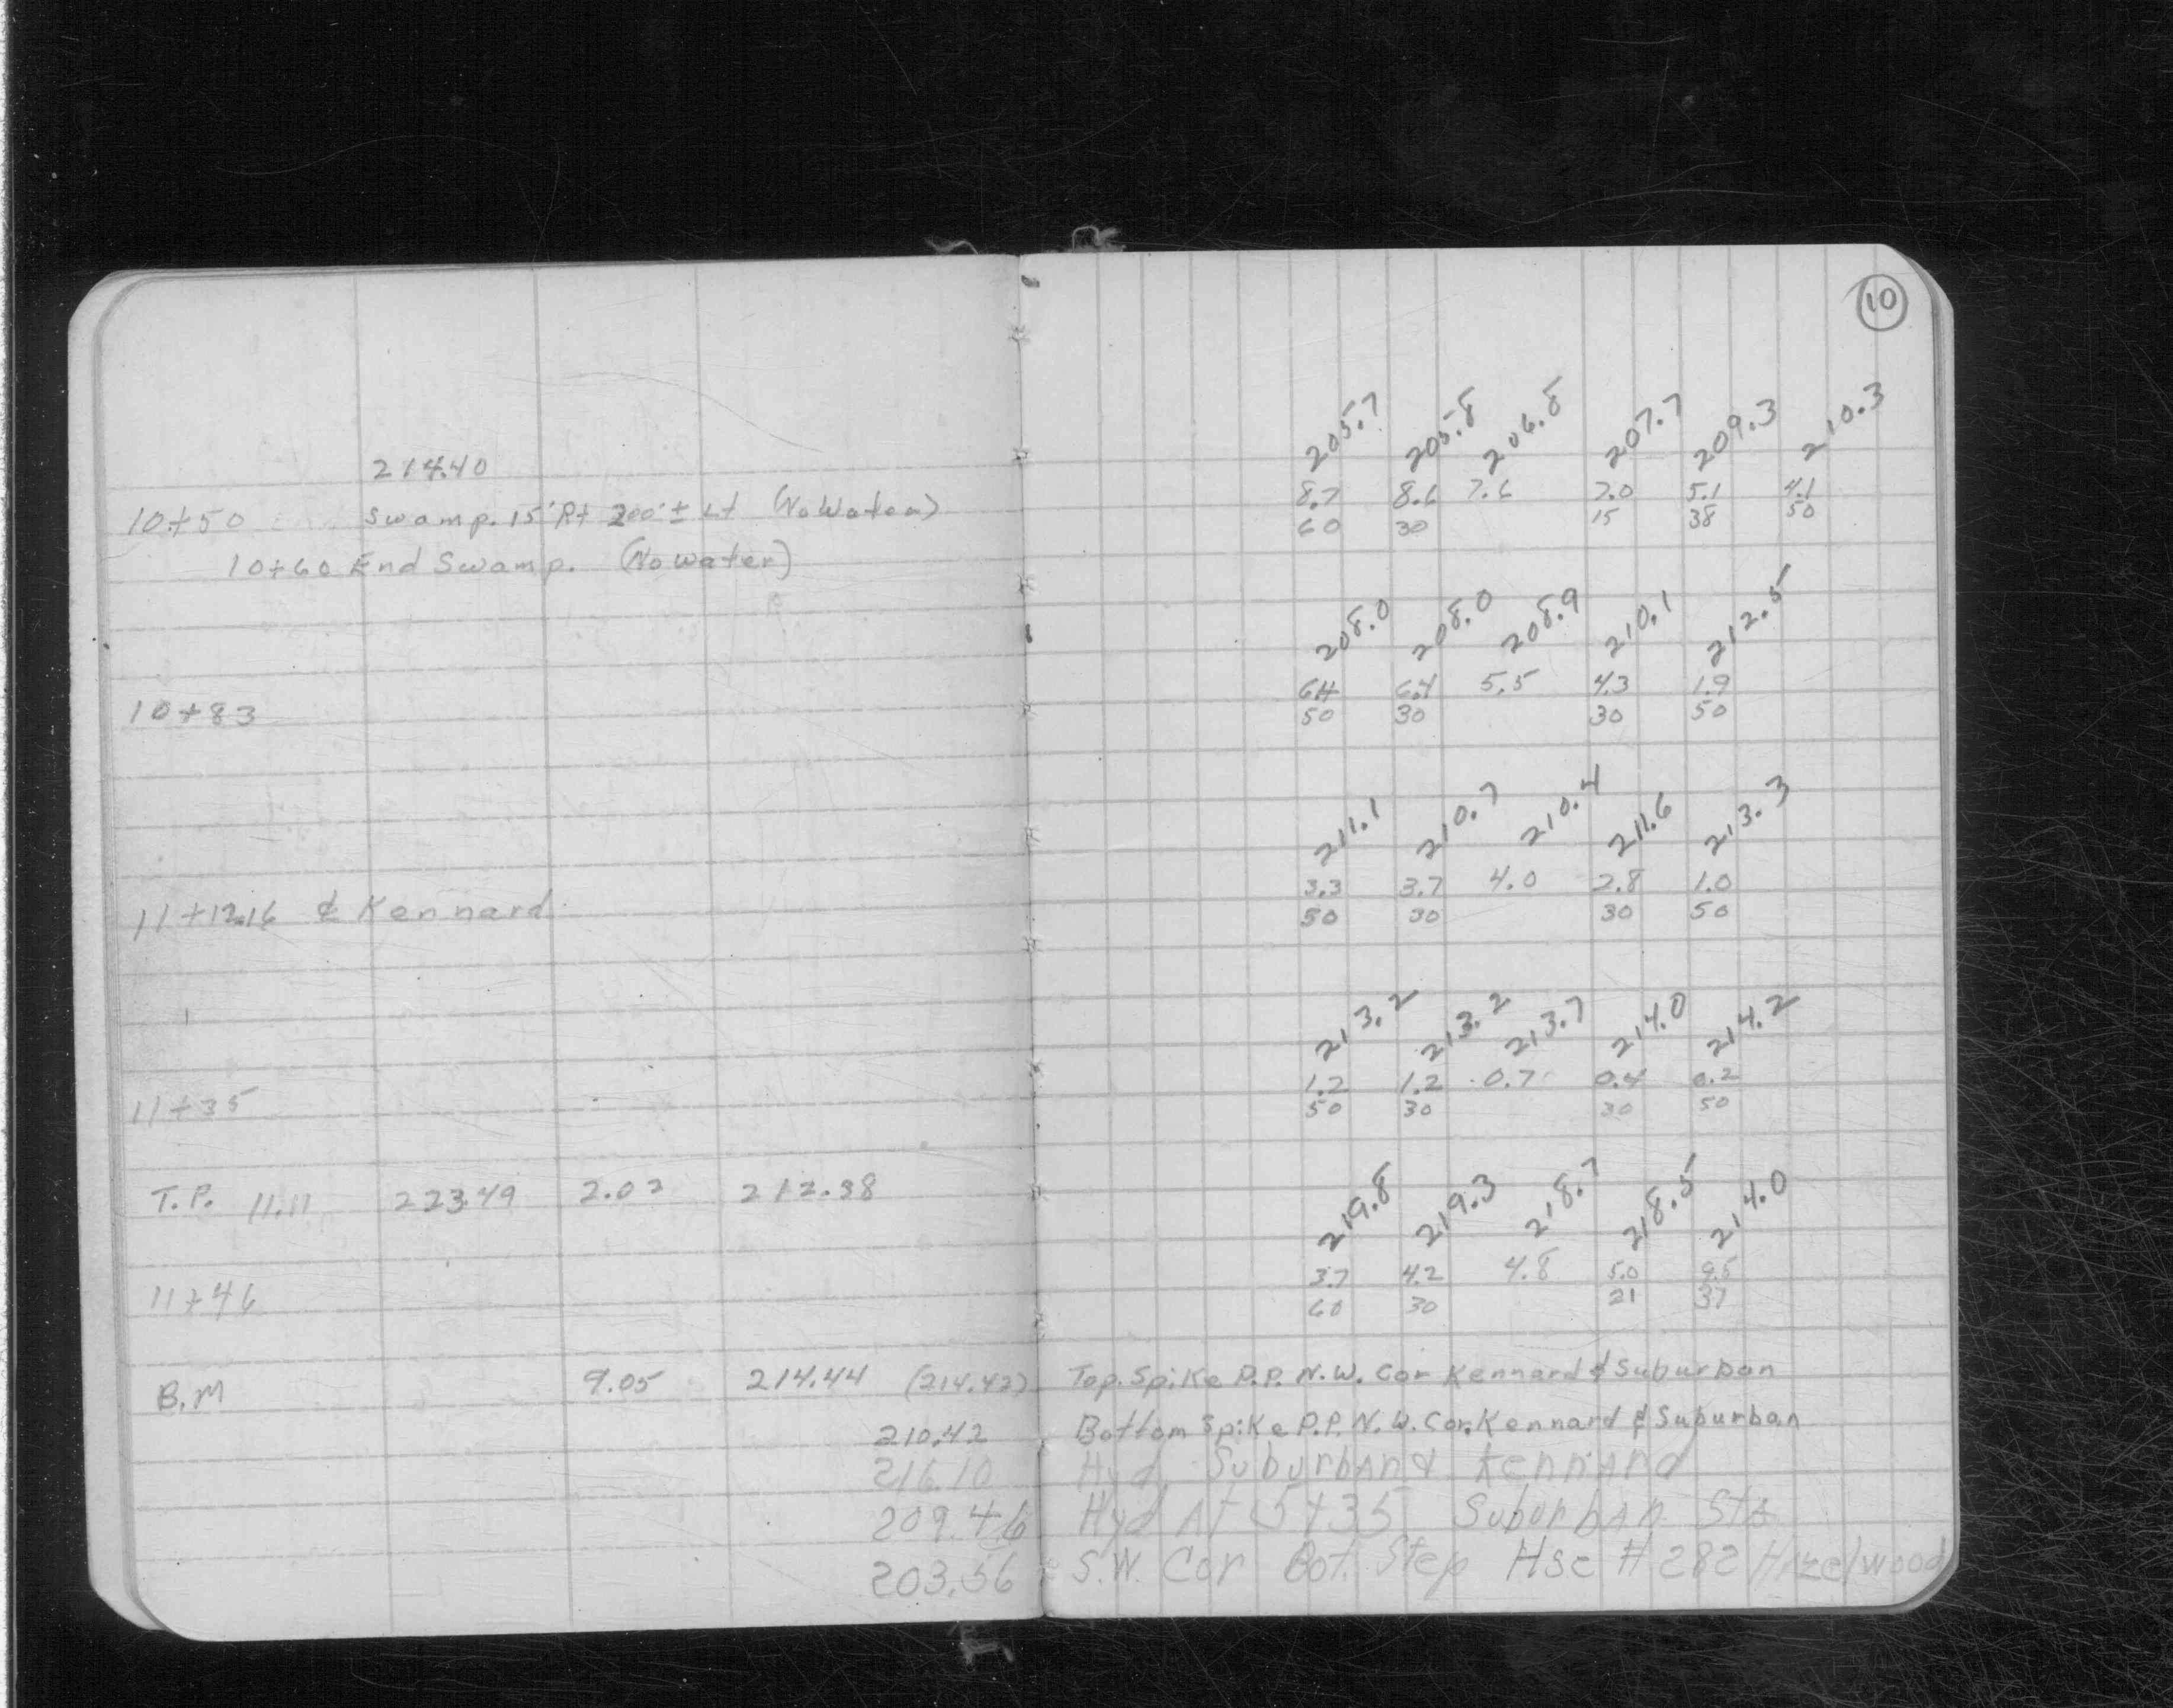 10
214.40
205.7 205.8 206.8 207.7 209.3 210.3
10+50 Swamp. 15' Rt 200'± Lt (No Water) 8.7 8.6 7.6 7.0 5.1 4.1
60 30 15 38 50
10+60 End Swamp. (No water)
208.0 208.0 208.9 210.1 212.5
6.4 6.4 5.5 4.3 1.9
10+83 50 30 30 50
211.1 210.7 210.4 211.6 213.3
3.3 3.7 4.0 2.8 1.0
11+12.16 ℄ Kennard 50 30 30 50
213.2 213.2 213.7 214.0 214.2
1.2 1.2 0.7 0.4 0.2
11+35 50 30 30 50
T.P. 11.11 223.49 2.02 212.38
219.8 219.3 218.7 218.5 214.0
3.7 4.2 4.8 5.0 9.5
11+46 60 30 21 37
B.M 9.05 214.44 (214.42) Top. Spike P.P. N.W. Cor Kennard & Suburban
210.42 Bottom Spike P.P. N.W. Cor. Kennard & Suburban
216.10 Hyd. Suburban & Kennard
209.46 Hyd At 5+35 Suburban Sta
203.56 S.W. Cor Bot. Step Hse # 282 Hazelwood